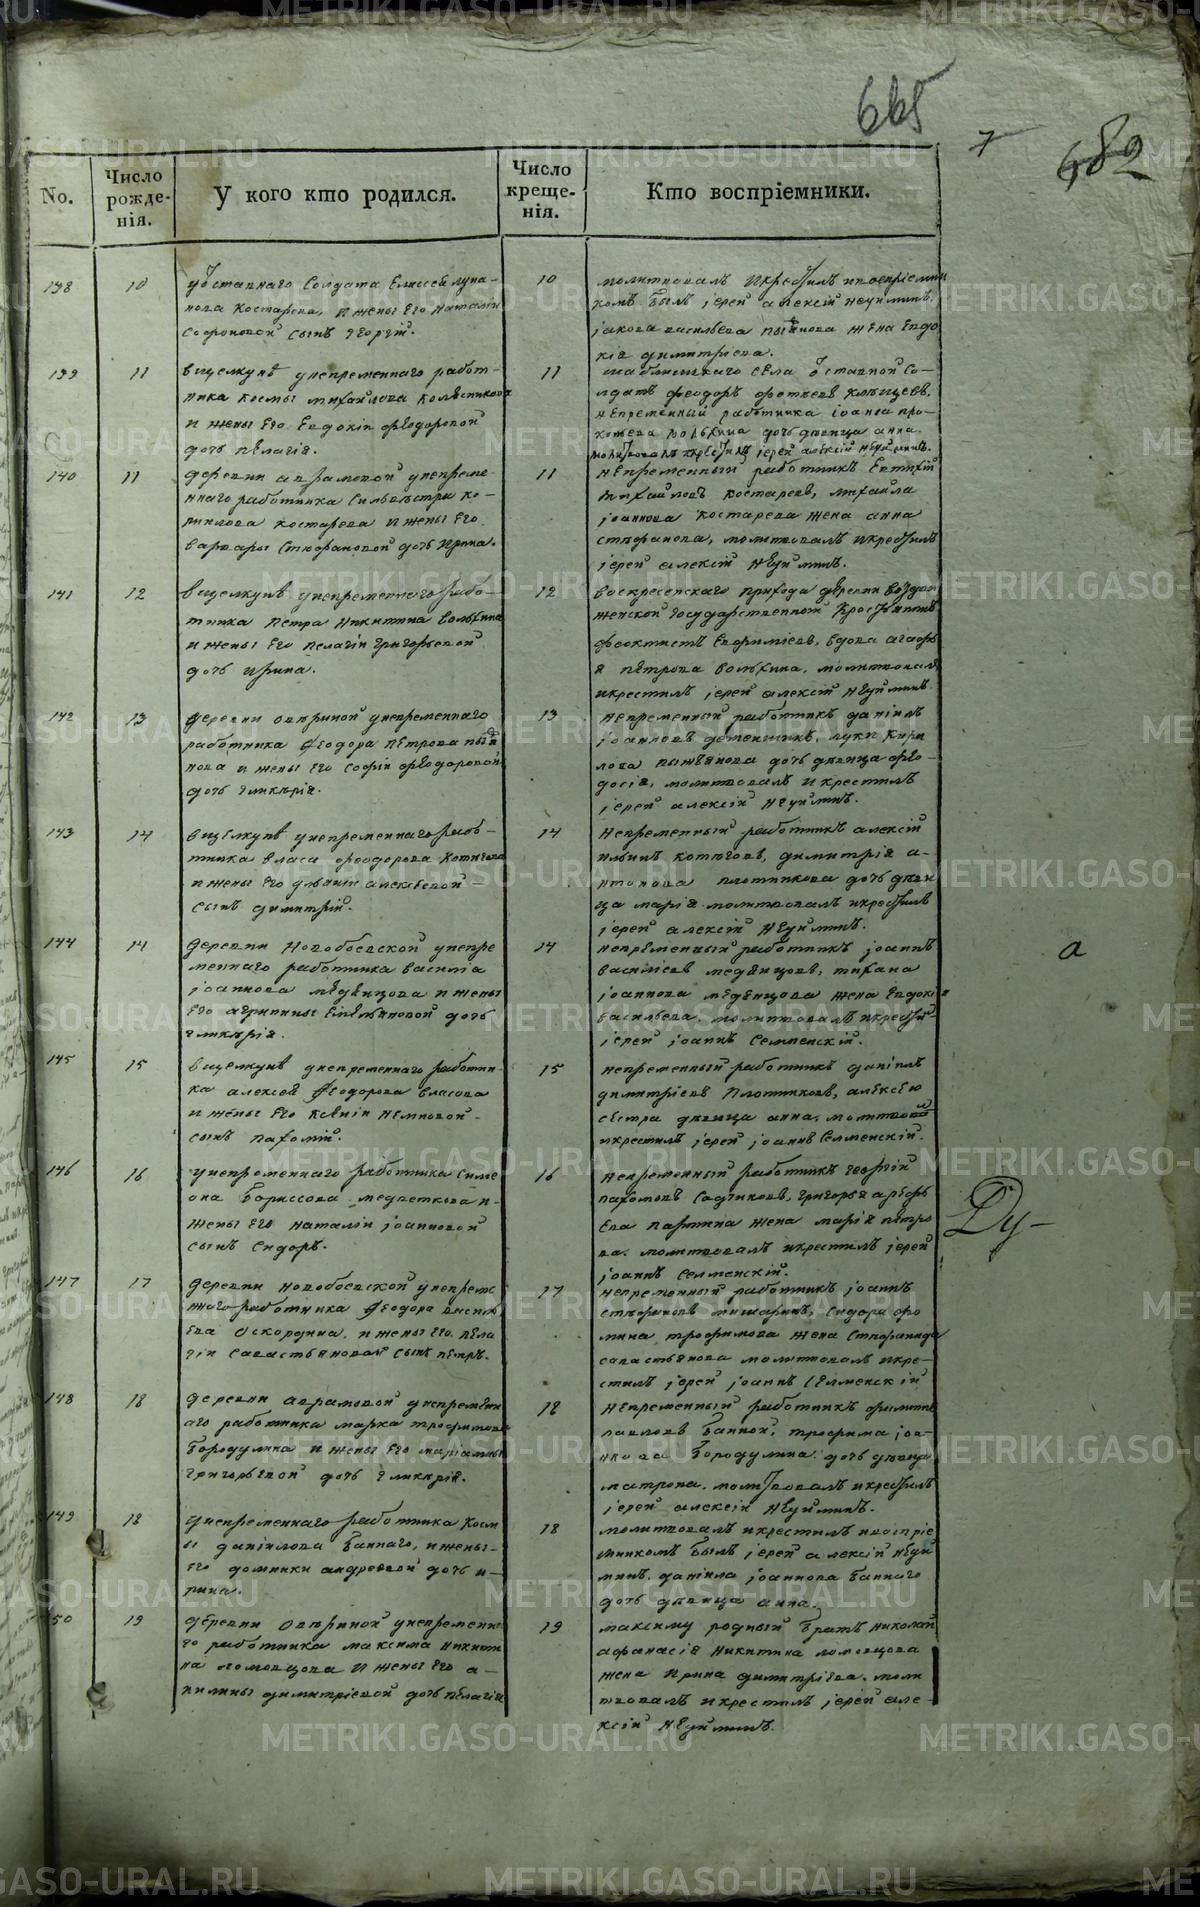 665
7
682
No.
Число рожденія.
У кого кто родился.
Число крещенія.
Кто воспріемники.
138
10
уотставнаго Солдата Елисея лупа-
нова Костарева, и жены Его наталіи
Софроновой сынъ георгій.
10
молитвовалъ икрестилъ ивоспріемни
комъ былъ іерей алексій неуйминъ,
іакова васильева жена Евдо
кія димитріева.
139
11
вщелкунѣ унепременнаго работ-
ника космы михайлова
и жены Его Евдокіи феодоровой
дочь пелагія.
11
села отставной Со-
лдатъ феодоръ
непременный работника іоанна про-
копьева дочь девица анна.
молитвовалъ икрестилъ іерей алексій неуйминъ.
140
11
деревни аврамовой унепреме-
ннаго работника Сильвестра ко-
рнилова костарева и жены Его
варвары Стефановой дочь ирина.
11
непременный работникъ Евтихій
михайловъ костаревъ, михаила
іоаннова костарева жена анна
стефанова, молитвовалъ икрестилъ
іерей алексій неуйминъ.
141
12
вщелкунѣ унепременнаго рабо-
тника петра никитина вольхина
и жены Его пелагіи григорьевой
дочь ирина.
12
воскресенскаго прихода деревни воздви
женской государственной крестьянинъ
феоктистъ Ефримовъ, вдова агафь
я петрова вольхина, молитвовалъ
икрестилъ іерей алексій неуйминъ.
142
13
деревни овириной унепременнаго
работника феодора петрова
и жены Его софіи феодоровой
дочь гликерія.
13
непременный работникъ даніилъ
іоанновъ луки кири
лова дочь девица фео-
досія, молитвовалъ и крестилъ
іерей алексій неуйминъ.
143
14
вщелкунѣ унепременнаго рабо-
тника власа феодорова котюгова
и жены Его алексѣевой
сынъ димитрій.
14
непременный работникъ алексій
ильинъ котюговъ, димитрія а-
нтонова плотникова дочь деви
ца марія молитвовалъ икрестилъ
іерей алексій неуйминъ.
144
14
деревни новобоевской унепре
меннаго работника василіа
іоаннова медвицова и жены
Его агрипины Емельяновой дочь
гликерія.
14
непременный работникъ іоаннъ
василіевъ медвицовъ, тихана
іоаннова медвицова жена Евдокія
васильева. молитвовалъ икрести-
іерей іоаннъ Селменскій.
а
145
15
вщелкунѣ унепременнаго работни-
ка алексея феодорова власова
и жены Его ксеніи
сынъ пахомій.
15
непременный работникъ даніилъ
димитріевъ Плотниковъ, алексею
сестра девица анна, молитвовалъ
икрестилъ іерей іоаннъ Селменскій.
146
16
унепременнаго работника симе
она борисова медведкова и-
жены его наталіи іоанновой
сынъ сидоръ.
16
непременный работникъ георгій
пахомовъ Садчиковъ, григорья арефь
Ева партина жена марія петро
ва. молитвовалъ икрестилъ іерей
іоаннъ Селменскій.
Ду-
147
17
деревни новобоевской унепреме
ннаго работника феодора василь
Ева оскордина, и жены Его пела
гіи савастьяновой сынъ петръ.
17
непременный работникъ іоаннъ
стефановъ мишаринъ, сидора фо
мина трофимова жена Стефанида
савастьянова молитвовалъ икре-
стилъ іерей іоаннъ Селменскій
148
18
деревни аврамовой унепременн
аго работника марка трофимова
бородулина и жены Его маріамны
григорьевой дочь гликерія.
18
непременный работникъ филипъ
павловъ банной, трофима іоа-
ннова бородулина дочь девица
матрона. молитвовалъ икрестилъ
іерей алексій неуйминъ.
149
18
унепременнаго работника косм
ы даніилова баннаго, и жены-
Его домники андреевой дочь и-
рина.
18
молитвовалъ икрестилъ ивоспріе
мникомъ былъ іерей алексій неуй
минъ, даніила іоаннова баннаго
дочь девица анна.
50
19
деревни овириной унепременна
го работника максима никити
на ломовцова и жены Его а-
килины димитріевой дочь пелагія
19
максиму родный братъ николай
афанасія никитина ломовцова
жена ирина димитріева. моли
твовалъ и крестилъ іерей але-
ксій неуйминъ.
METRIKI.GASO-URAL.RU